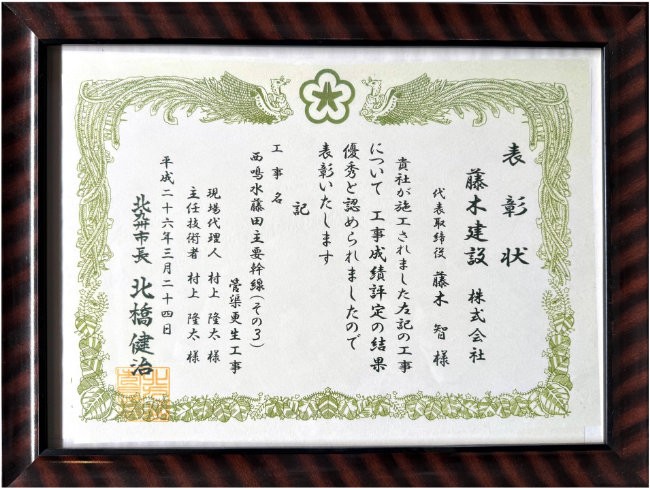 表彰状
藤木建設 株式会社
代表取締役 藤木 智 様
貴社が施工されました左記の工事
について 工事成績評定の結果
優秀と認められましたので
表彰いたします
記
工事名
西鳴水藤田主要幹線(その3)
管渠更生工事
現場代理人 村上 隆太 様
主任技術者 村上 隆太 様
平成二十六年三月二十四日
北九州市長 北橋健治